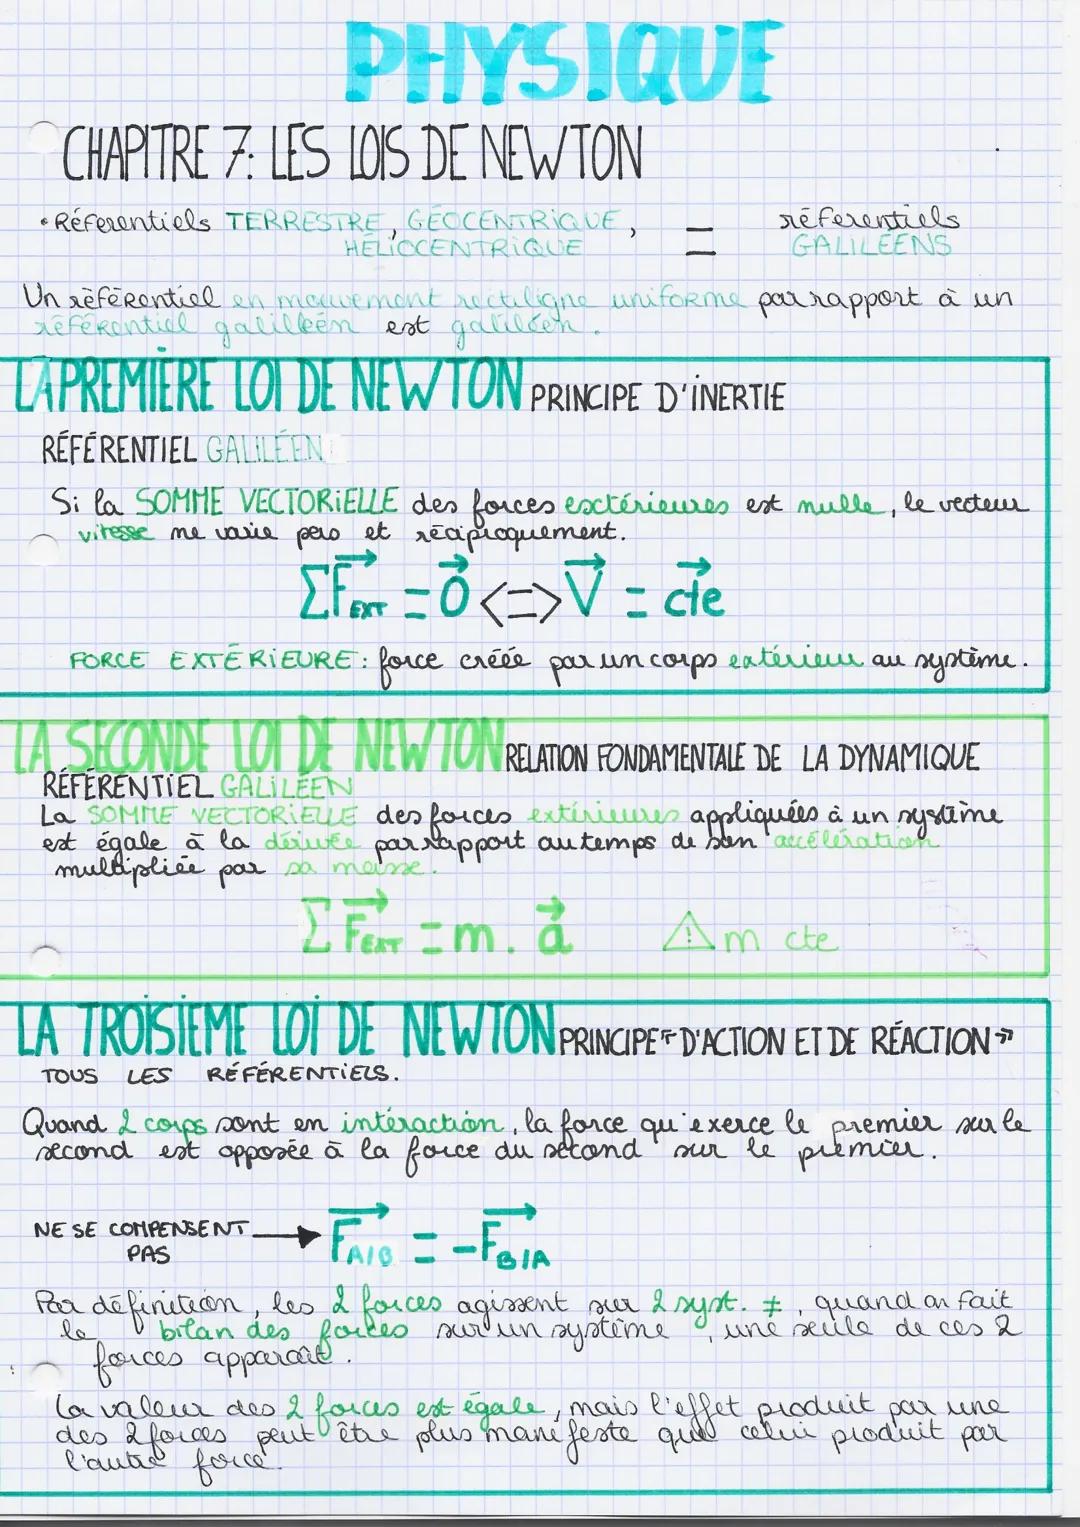 PHYSIQUE
CHAPITRE 7: LES LOIS DE NEWTON
• Référentiels TERRESTRE, GÉOCENTRIQUE, = référentiels
HÉLIOCENTRIQUE GALILÉENS
Un référentiel en mouvement rectiligne uniforme par rapport à un
référentiel galilléen est galiléen.
LA PREMIÈRE LOI DE NEWTON PRINCIPE D'INERTIE
RÉFÉRENTIEL GALILÉEN
Si la SOMME VECTORIELLE des forces exctérieures est nulle, le vecteur
vitesse ne varie pas et réciproquement.
ΣF⃗EXT = 0⃗ <=> V⃗ = cte⃗
FORCE EXTÉRIEURE: force créée par un corps extérieur au système.
LA SECONDE LOI DE NEWTON RELATION FONDAMENTALE DE LA DYNAMIQUE
RÉFÉRENTIEL GALILÉEN
La SOMME VECTORIELLE des forces extérieures appliquées à un système
est égale à la dérivée par rapport au temps de son accélération
multipliée par sa masse.
ΣF⃗EXT = m. a⃗ ⚠ m cte
LA TROISIÈME LOI DE NEWTON PRINCIPE « D'ACTION ET DE RÉACTION »
TOUS LES RÉFÉRENTIELS.
Quand 2 corps sont en intéraction, la force qu'exerce le premier sur le
second est opposée à la force du second sur le premier.
NE SE COMPENSENT → F⃗A/B = -F⃗B/A
PAS
Par définition, les 2 forces agissent sur 2 syst. ≠, quand on fait
le bilan des forces sur un système, une seule de ces 2
forces apparaît.
La valeur des 2 forces est égale, mais l'effet produit par une
des 2 forces peut être plus manifeste que celui produit par
l'autre force.